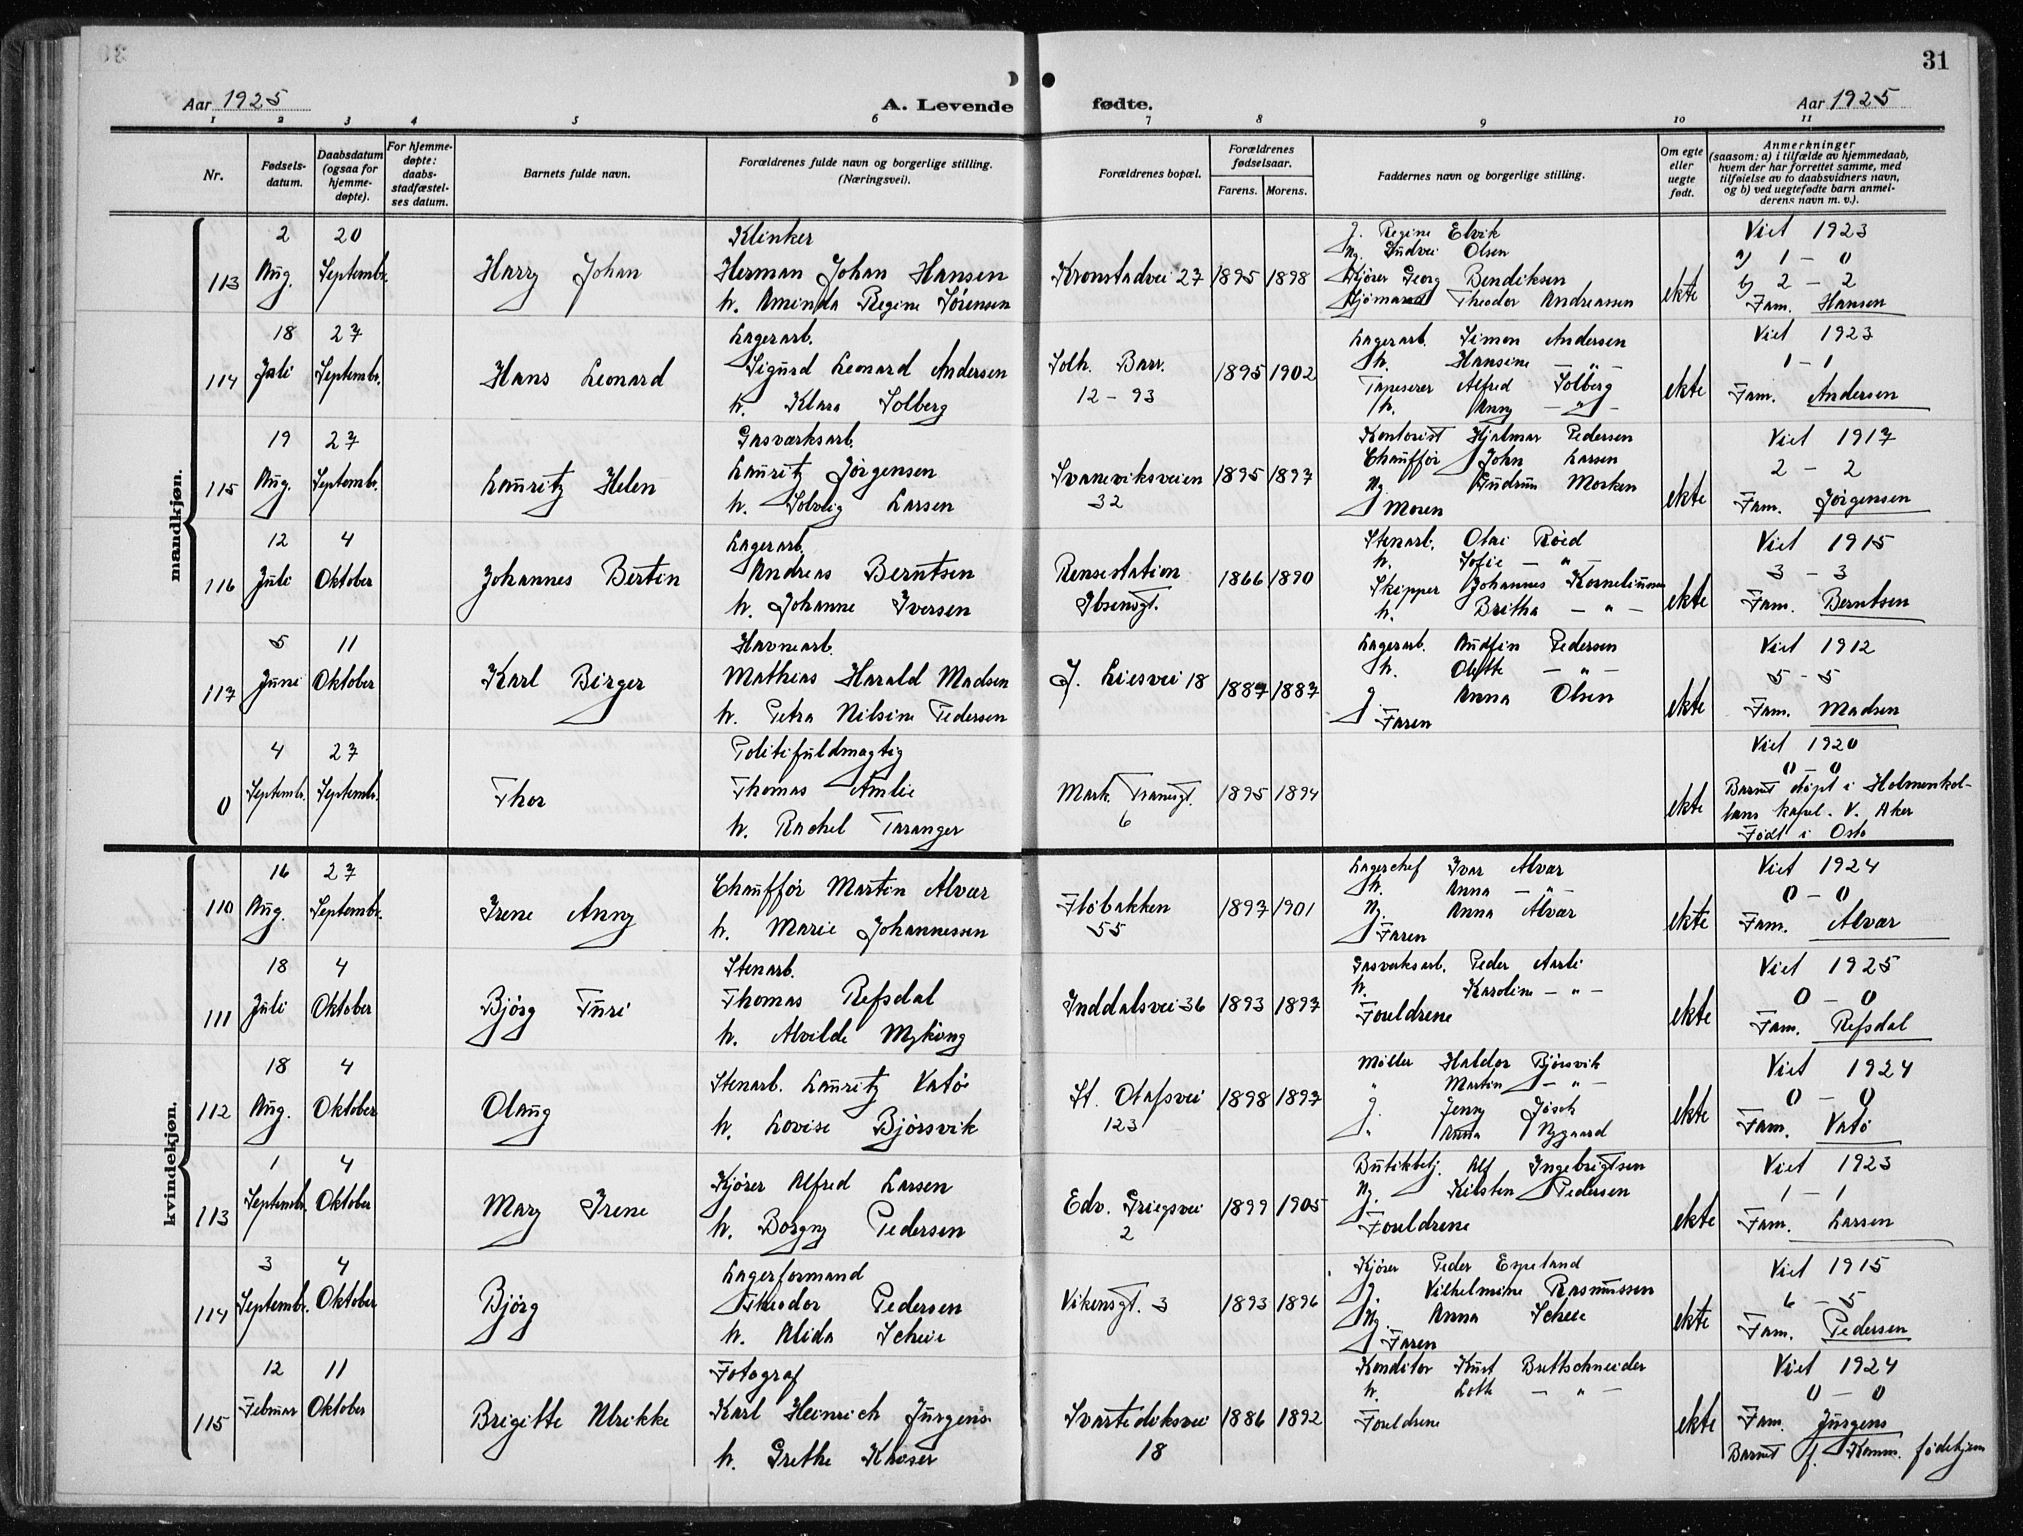 31
Aar 1925
A. Levende fødte.
Aar 1925
1 2 3 4 5 6 7 8 9 10 11
Nr.
Fødsels-
datum.
Daabsdatum
(ogsaa for
hjemme-
døpte).
For hjemme-
døpte:
daabs-
stadfæstel-
ses datum.
Barnets fulde navn.
Forældrenes fulde navn og borgerlige stilling.
(Næringsvei).
Forældrenes bopæl.
Forældrenes
fødselsaar.
Farens. Morens.
Faddernes navn og borgerlige stilling.
Om egte
eller
uegte
født.
Anmerkninger
(saasom: a) i tilfælde av hjemmedaab,
hvem der har forrettet samme, med
tilføielse av to daabsvidners navn,
og b) ved uegtefødte barn anmel-
derens navn m. v.).
mandkjøn.
113
2
Aug.
20
Septembr.
Harry Johan
Klinker
Herman Johan Hansen
h. Aminda Regine Sørensen
Kronstadvei 27
1895 1898
J. Regine Elvik
Ug. Gudvei Olsen
Kjører Georg Bendiksen
Sjømand Theodor Andreassen
ekte
Viet 1923
a) 1 - 0
b) 2 - 2
Fam. Hansen
114
18
Juli
27
Septembr.
Hans Leonard
Lagerarb.
Sigurd Leonard Andersen
h. Klara Solberg
Solh. Barr.
12 - 93
1895 1902
Lagerarb. Simon Andersen
h. Hansine - " -
Tapeserer Alfred Solberg
h. Anny - " -
ekte
Viet 1923
1 - 1
Fam. Andersen
115
19
Aug.
27
Septembr.
Lauritz Helen
Gasværksarb.
Lauritz Jørgensen
h. Solveig Larsen
Svaneviksveien
32
1895 1897
Kontorist Hjalmar Pedersen
Chauffør John Larsen
Ug. Gudrun Morken
Moren
ekte
Viet 1917
2 - 2
Fam. Jørgensen
116
12
Juli
4
Oktober
Johannes Bertin
Lagerarb.
Andreas Berntsen
h. Johanne Iversen
Rensestation
Ibsensgt.
1866 1890
Stenarb. Olai Røid
h. Sofie - " -
Skipper Johannes Korneliussen
h. Britha - " -
ekte
Viet 1915
3 - 3
Fam. Berntsen
117
5
Juni
11
Oktober
Karl Birger
Havnearb.
Mathias Harald Madsen
h. Petra Nilsine Pedersen
J. Liesvei 18
1887 1887
Lagerarb. Audfin Pedersen
h. Olette - " -
J. Anna Olsen
Faren
ekte
Viet 1912
5 - 5
Fam. Madsen
0
4
Septembr.
27
Septembr.
Thor
Politifuldmægtig
Thomas Amlie
h. Rachel Taranger
Mark. Thranesgt.
6
1895 1894
ekte
Viet 1920
0 - 0
Barnet døpt i Holmenkol-
lens kapel. V. Aker
Født i Oslo
kvindekjøn.
110
16
Aug.
27
Septembr.
Irene Anny
Chauffør Martin Alvær
h. Marie Johannessen
Fløbakken
55
1897 1901
Lagerchef Ivar Alvær
h. Anna - " -
Ug. Anna Alvær
Faren
ekte
Viet 1924
0 - 0
Fam. Alvær
111
18
Juli
4
Oktober
Bjørg Turi
Stenarb.
Thomas Refsdal
h. Alvilde Myking
Inddalsvei 36
1893 1897
Gasverksarb. Peder Aarli
h. Karoline - " -
Foreldrene
ekte
Viet 1925
0 - 0
Fam. Refsdal
112
18
Aug.
4
Oktober
Olaug
Stenarb. Lauritz Vatøi
h. Lovise Bjørsvik
St. Olafsvei
123
1898 1897
Møller Haldor Bjørsvik
" Martin - " -
J. Jenny Jøsok
" Anna Nygaard
ekte
Viet 1924
0 - 0
Fam. Vatø
113
1
Septembr.
4
Oktober
Mary Irene
Kjører Alfred Larsen
h. Borgny Pedersen
Edv. Griegsvei
2
1899 1905
Butikkbetj. Alf Ingebrigtsen
Ug. Kirsten Pedersen
Foreldrene
ekte
Viet 1923
1 - 1
Fam. Larsen
114
3
Septembr.
4
Oktober
Bjørg
Lagerformand
Theodor Pedersen
h. Alida Scheie
Vikensgt. 3
1893 1896
Kjører Peder Espeland
J. Vilhelmine Rasmussen
Ug. Anna Scheie
Faren
ekte
Viet 1915
6 - 5
Fam. Pedersen
115
12
Februar
11
Oktober
Brigitte Ulrikke
Fotograf
Karl Heinrich Jürgens
h. Grethe Kaiser
Svartediksvei
18
1886 1892
Konditor Kurt Brettschneider
h. Lotte - " -
Foreldrene
ekte
Viet 1924
0 - 0
Fam. Jürgens
Barnet f. Komm. fødehjem